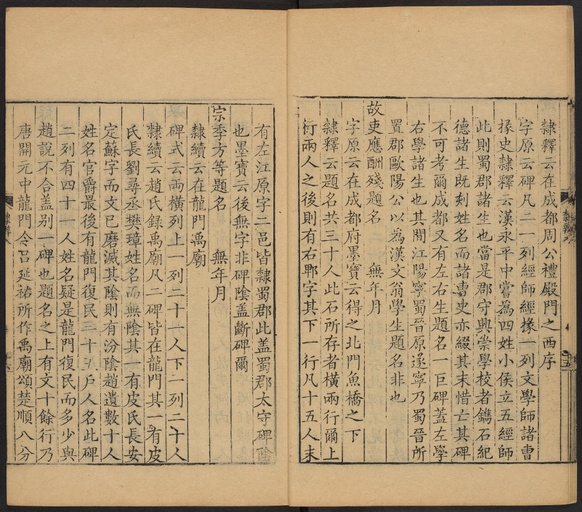 隸釋云在成都周公禮殿門之西序
字原云碑凡二一列經師經掾一列文學師諸曹
掾史隸釋云漢永平中嘗為四姓小侯立五經師
此則蜀郡諸生也當是郡守興崇學校者鐫石紀
德諸生既刻姓名而諸曹史亦綴其末惜亡其碑
不可考爾成都又有左右生題名一巨碑蓋左學
右學諸生也其間江陽寧蜀晉原遂寧乃蜀晉所
置郡歐陽公以為漢文翁學生題名非也
故吏應酬殘題名 無年月
字原云在成都府墨寶云得之北門魚橋之下
隸釋云題名共三十人此石所存者橫兩行爾上
行兩人之後則有右鄹字其下一行凡十五人末
有左江原字二邑皆隸蜀郡此蓋蜀郡太守碑陰
也墨寶云後無字非碑陰蓋斷碑爾
宗季方等題名 無年月
隸續云在龍門禹廟
碑式云兩橫列上一列二十一人下一列二十人
隸續云趙氏錄禹廟凡二碑皆在龍門其一有皮
氏長劉尋丞樊璋姓名而無陰其一有皮氏長安
定蘇字而文已磨滅其陰則有汾陰趙遺數十人
姓名官爵最後有龍門復民三十五戶人名此碑
二列有四十一人姓名疑是龍門復民而多少與
趙說不合蓋别一碑也題名之上有文十餘行乃
唐開元中龍門令呂延祐所作禹廟頌楚順八分